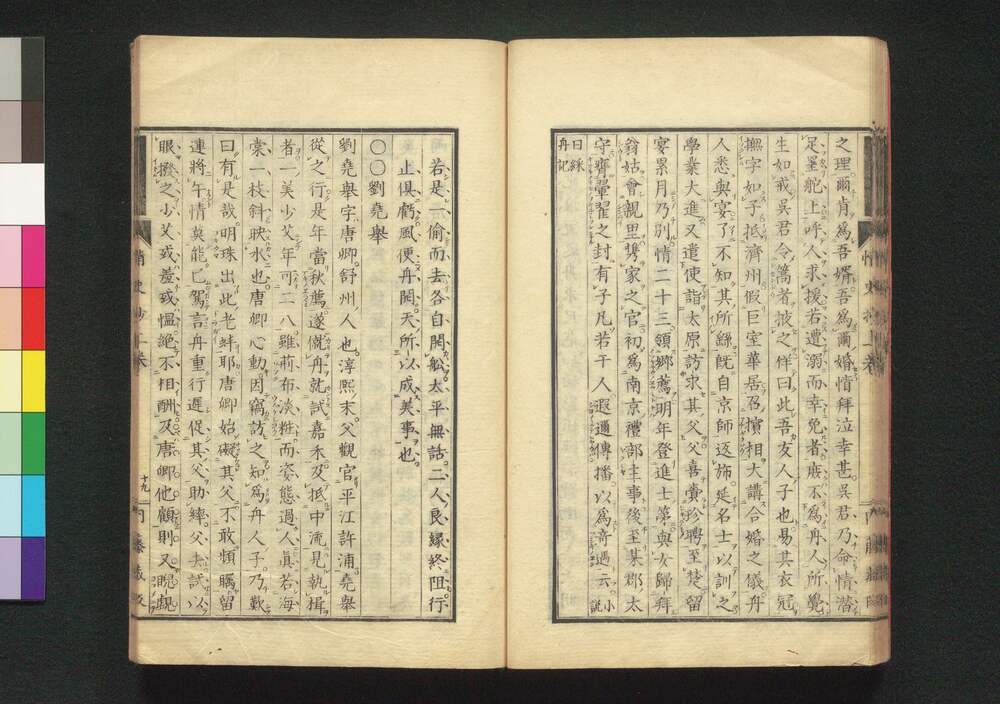 之理爾肯爲吾婿吾爲爾婚情拜泣幸甚吳君乃命情潛
足至舵上呼人求援若遭溺而幸免者庶不爲丹人所覺
生如戒吳君令篙者掖之佯曰此吾友人子也易其衣冠
撫字如子抵濟州假巨室華居召儐相大講合婚之儀舟
人悉與宴了不知其所繇既自京師返旆延名士以訓之
學業大進又遣使詣太原訪求其父父喜賚珍聘至楚留
宴累月乃別情二十三領鄉薦明年登進士第與女歸拜
翁姑會親里携家之官初爲南京禮部主事後至某郡太
守膺翬翟之封有子凡若干人遐邇傳播以爲奇遇云 小說
日緑
舟記
若是一偷而去各自開舩太平無話二人良縁終阻行
止俱虧風便舟開天所以成美事也
〇〇劉堯舉
劉堯舉字唐卿舒州人也淳熙末父觀官平江許浦堯舉
從之行是年當秋薦遂僦舟就試嘉禾及抵中流見執楫
者一美少艾年可二八雖荊布淡粧而姿態過人眞若海
棠一枝斜映水也唐卿心動因竊訪之知爲舟人子乃歎
曰有是哉明珠出此老蚌耶唐卿始礙其父不敢頻矚留
連將午情莫能已駕言舟重行遲促其父助縴父去試以
眼撥之少艾或羞或愠絶不相酬及唐卿他顧則又睨覷
情史抄二卷
十九